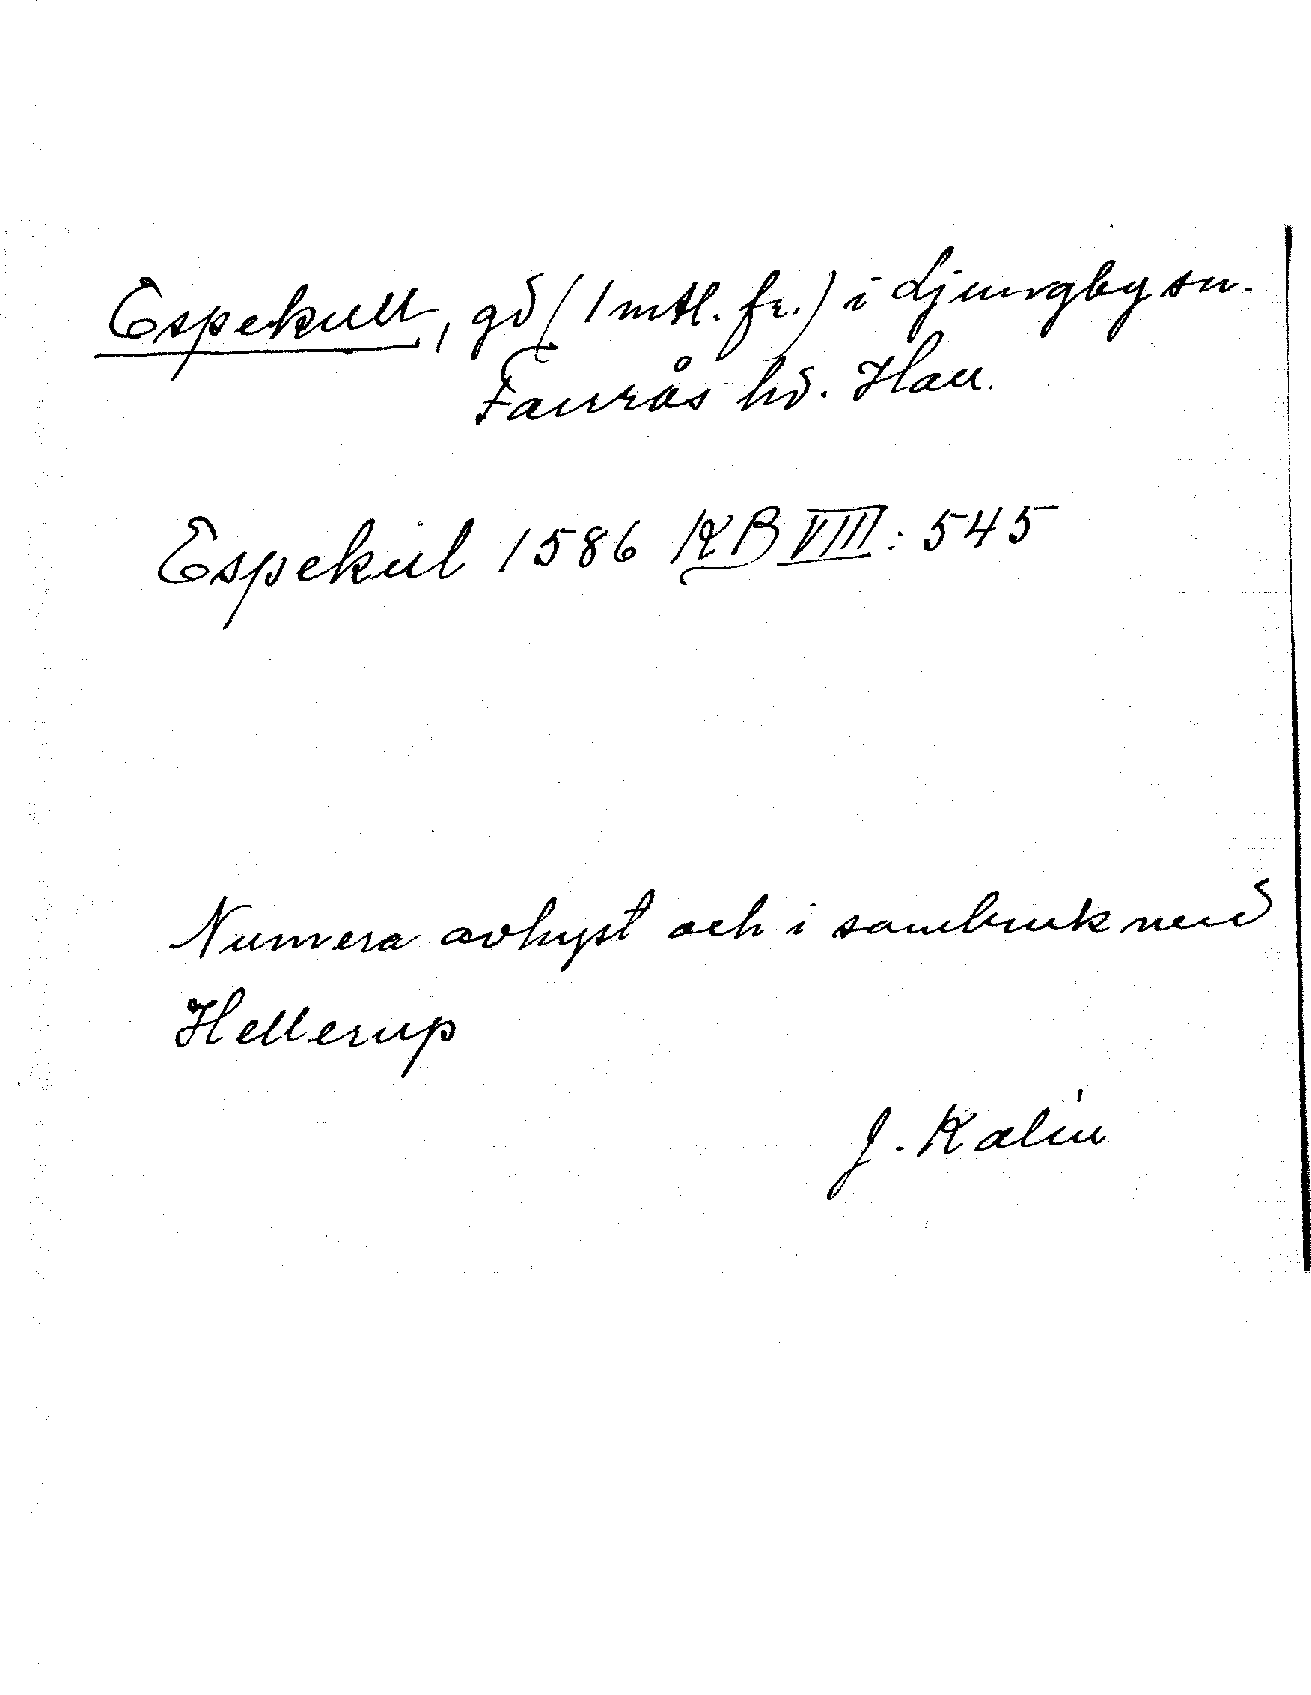 Espekull, gd (1 mtl. fr.) i Ljungby sn.
Faurås hd. Hall.
Espekul 1586 KB VIII: 545
Numera avhyst och i sambruk med
Hellerup
J. Kalén